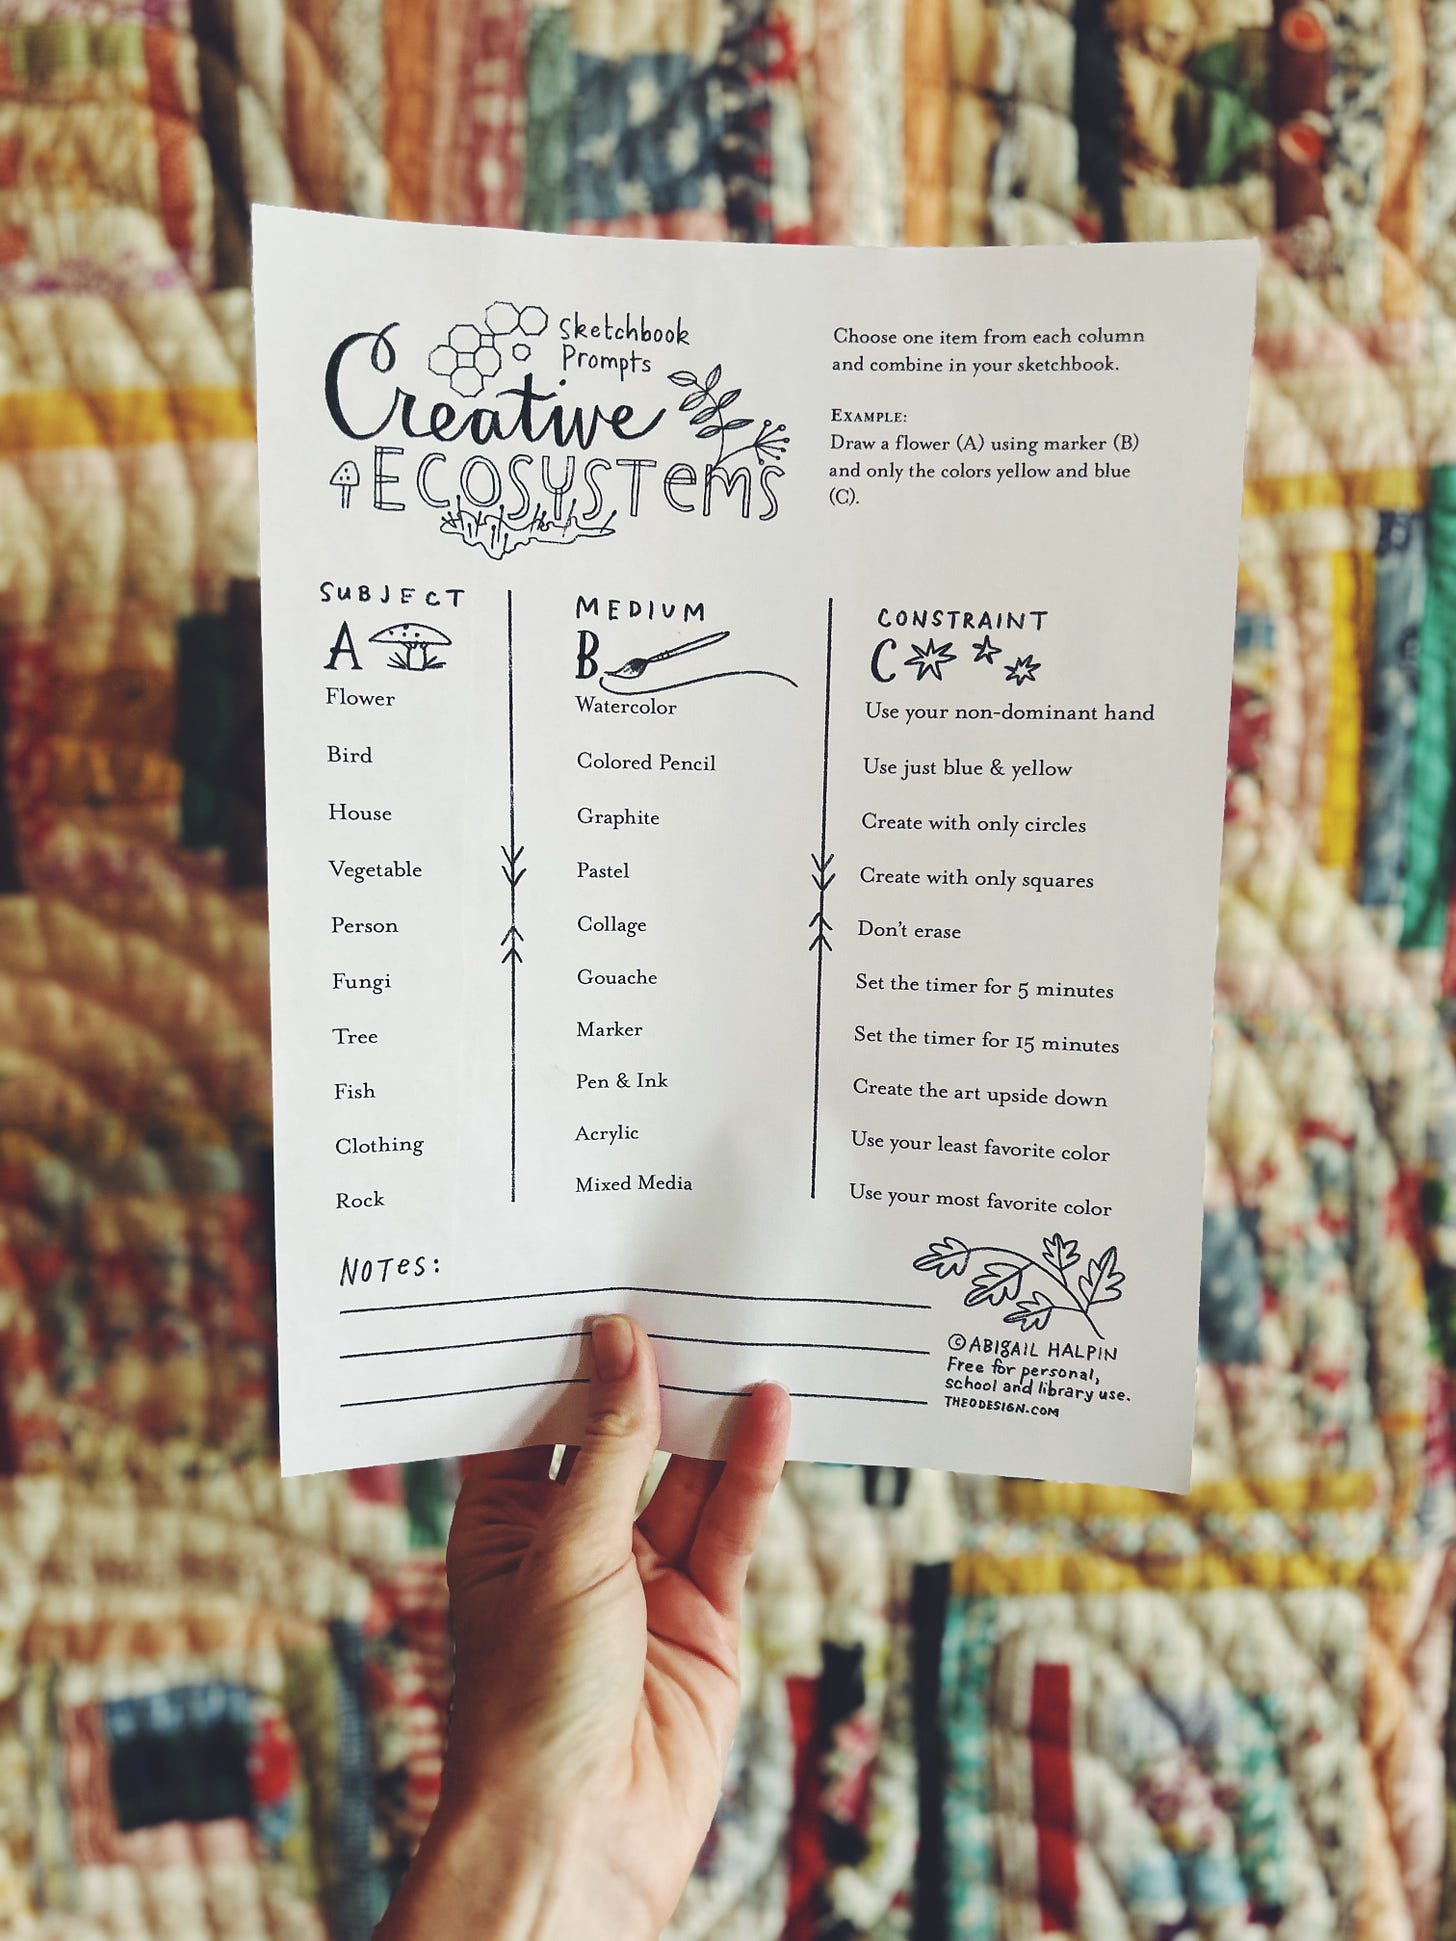 Sketchbook
Prompts
Creative
ECOSYSTEMS
Choose one item from each column
and combine in your sketchbook.
EXAMPLE:
Draw a flower (A) using marker (B)
and only the colors yellow and blue
(C).
SUBJECT
A
Flower
Bird
House
Vegetable
Person
Fungi
Tree
Fish
Clothing
Rock
MEDIUM
B
Watercolor
Colored Pencil
Graphite
Pastel
Collage
Gouache
Marker
Pen & Ink
Acrylic
Mixed Media
CONSTRAINT
C
Use your non-dominant hand
Use just blue & yellow
Create with only circles
Create with only squares
Don't erase
Set the timer for 5 minutes
Set the timer for 15 minutes
Create the art upside down
Use your least favorite color
Use your most favorite color
NOTES:
© ABIGAIL HALPIN
Free for personal,
school and library use.
THEODESIGN.COM